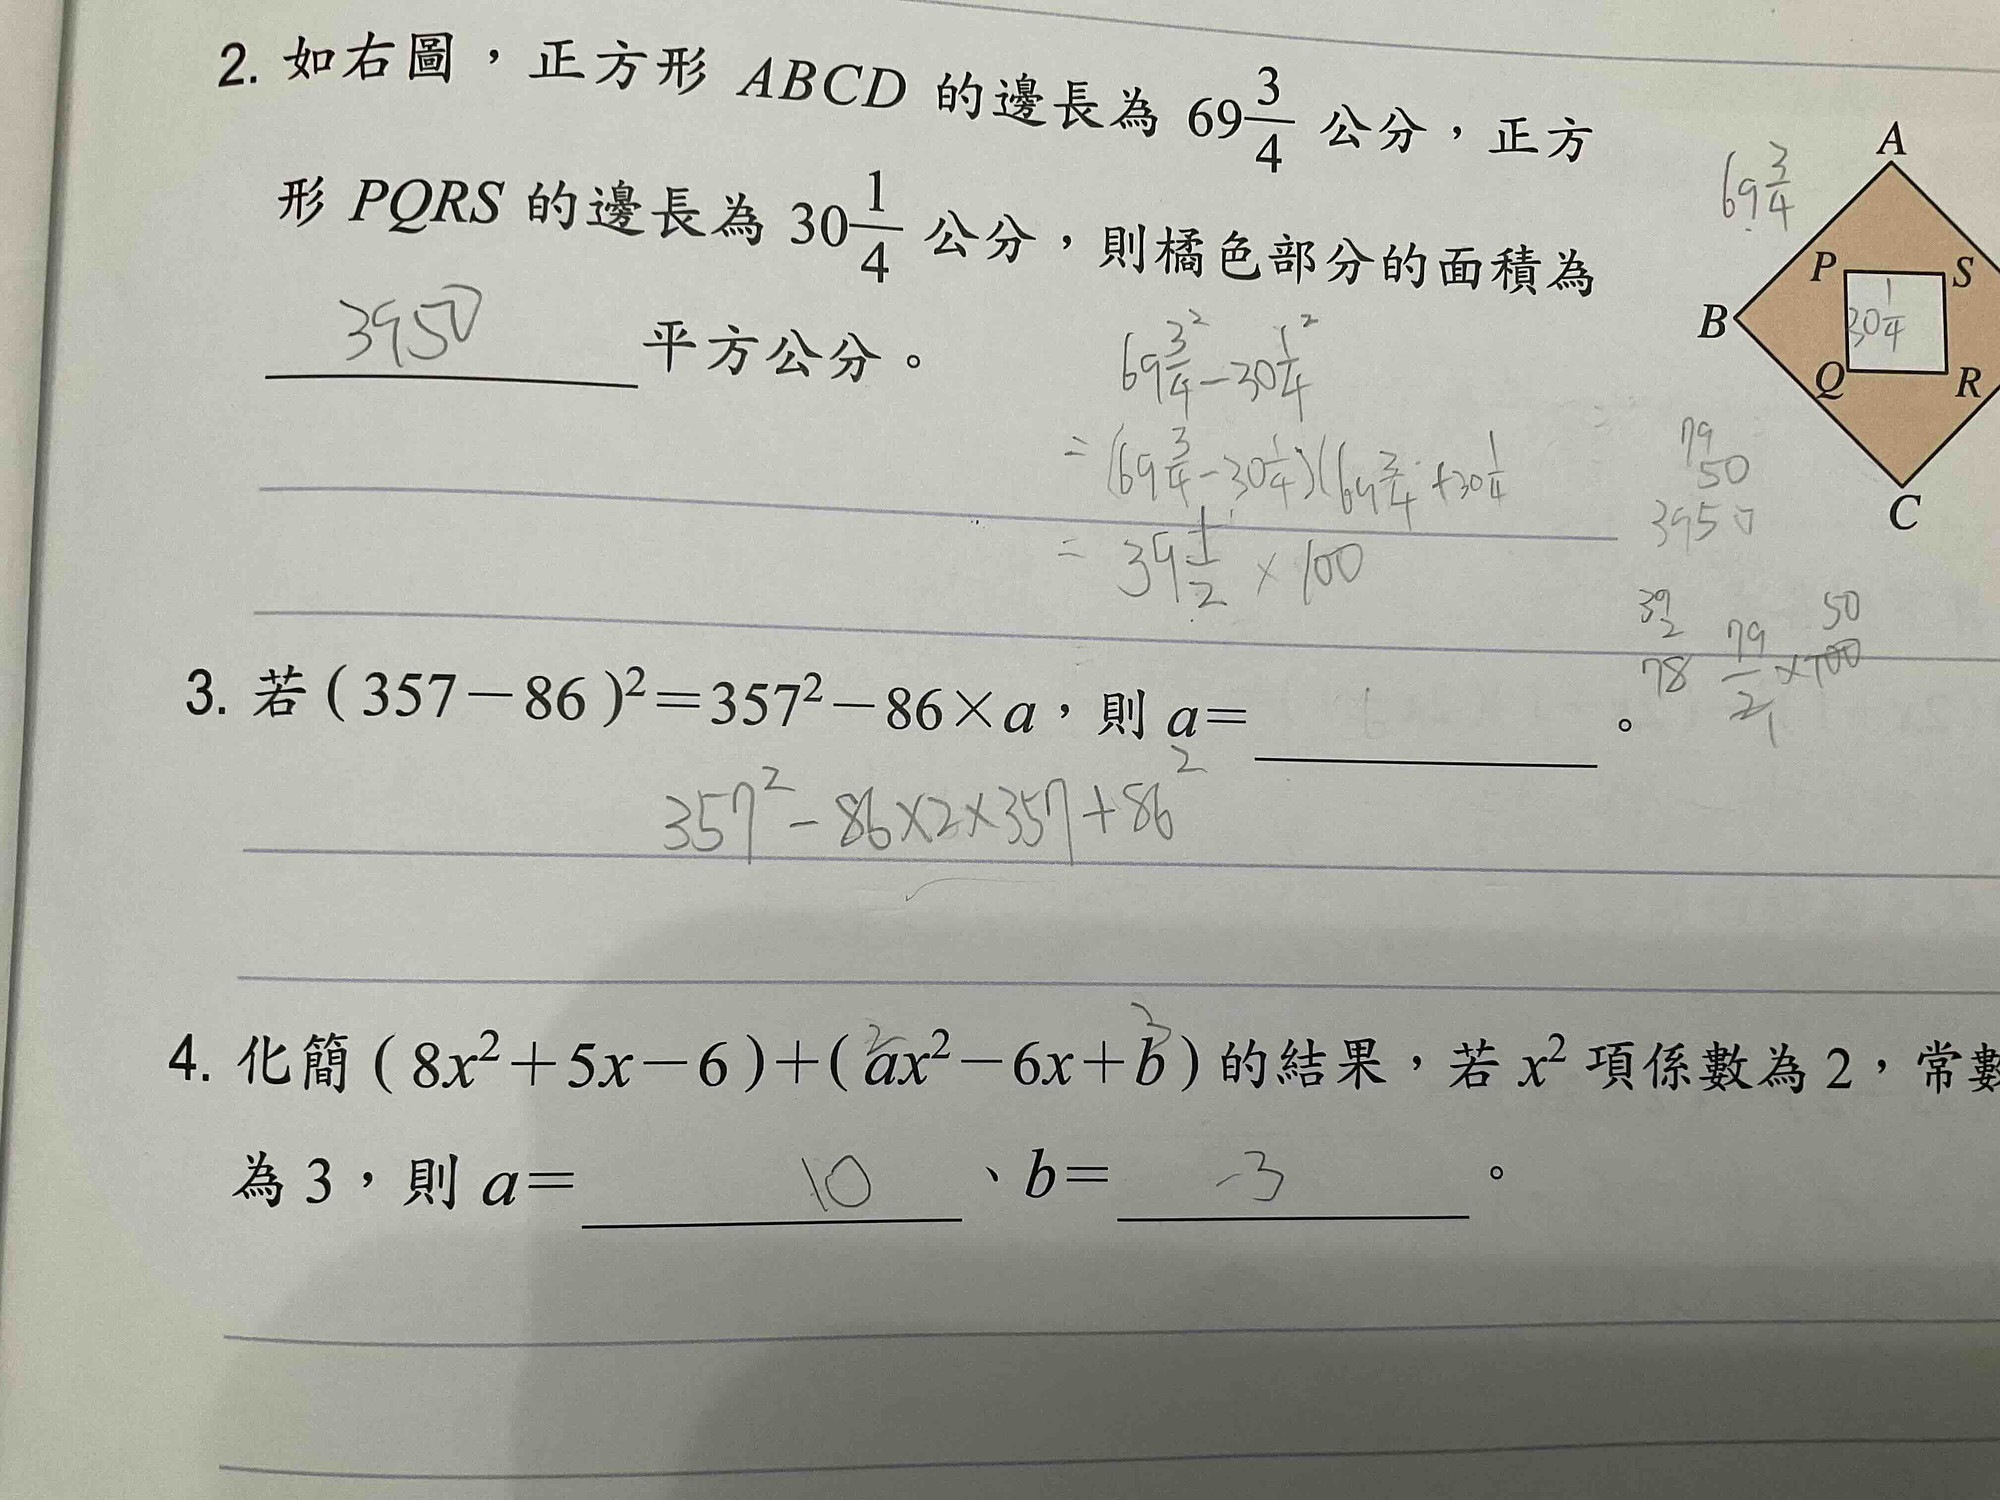 2. 如右圖，正方形 ABCD 的邊長為 69 3/4 公分，正方
形 PQRS 的邊長為 30 1/4 公分，則橘色部分的面積為
3950 平方公分。
A
69 3/4
P S
30 1/4
B
Q R
C
69 3/4² − 30 1/4²
= (69 3/4 − 30 1/4)(69 3/4 + 30 1/4
= 39 1/2 × 100
79
50
3950
39
2
78
79/2 × 100
50
1
3. 若（357－86）²＝357²－86×a，則 a＝ 。
357² − 86×2×357+86²
4. 化簡（8x²＋5x－6）＋（ax²－6x＋b）的結果，若 x² 項係數為 2，常數
2 3
為 3，則 a＝ 10 、b＝ -3 。